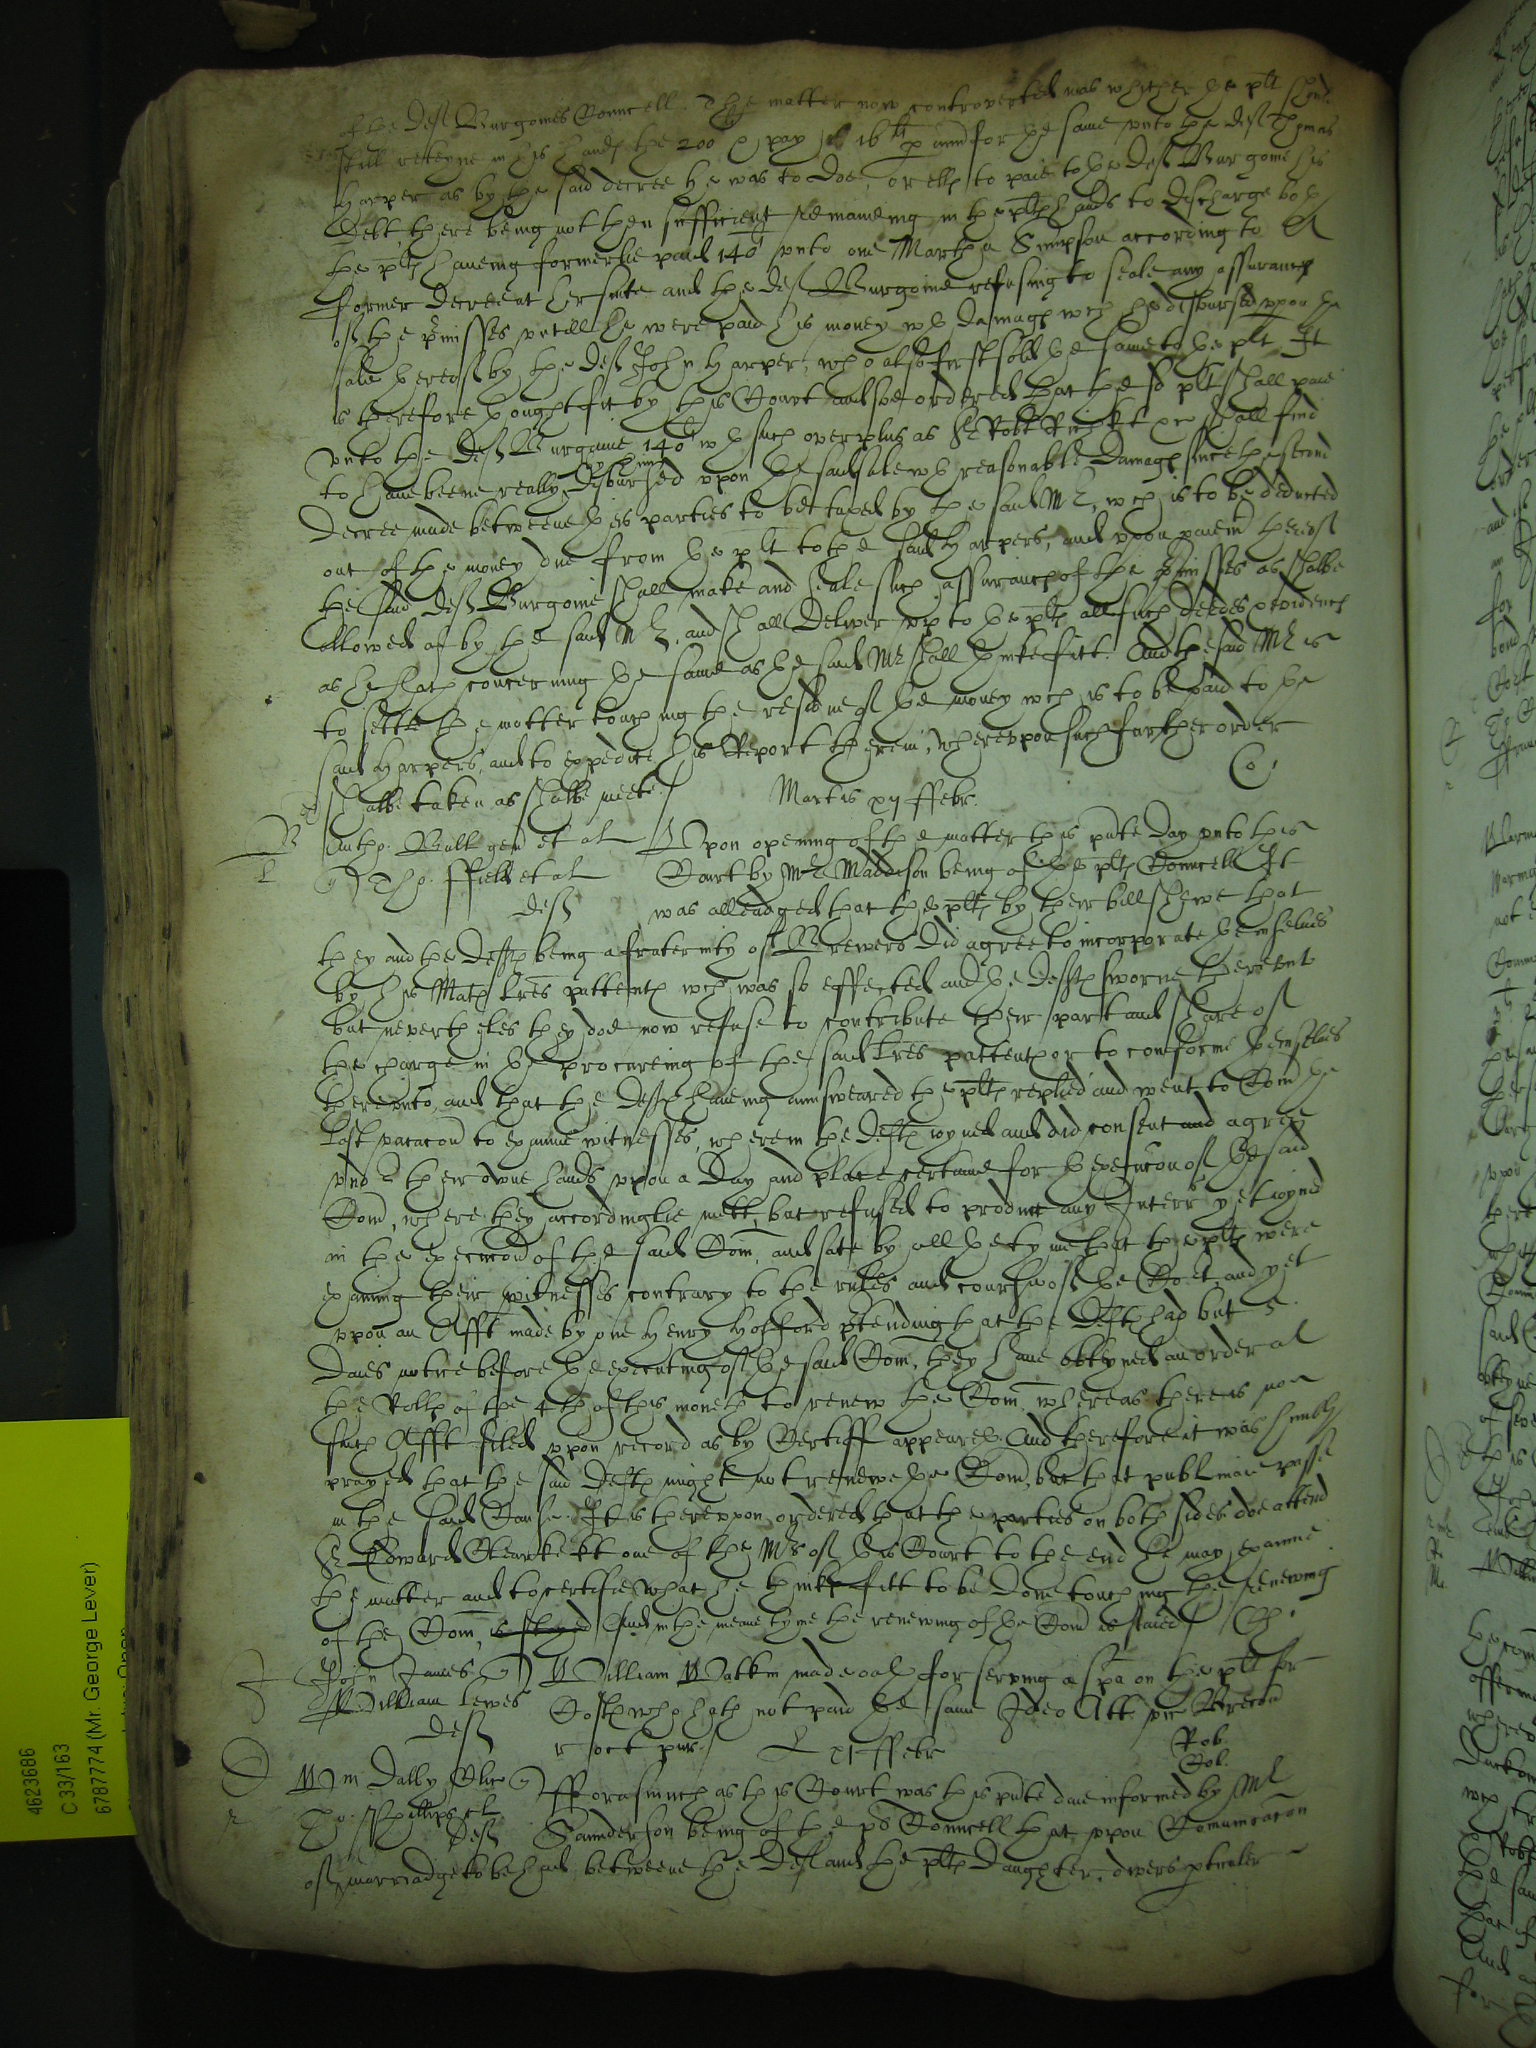 of the deft Burgoines Councell. The matter now controverted was whither the plt should
still reteyne in his hands the 200 l & pay 16 l p ann for the same unto the deft Thomas
Harper as by the said decree he was to doe, or ells to paie to the deft Burgoine his
Debt, there being not then sufficient remaineing in the plts hands to discharge both
the plt haveing formerlie paid 140 l unto one Martha Simpson according to a
former decree at her suite and the deft Burgoine refusing to seale any assurance
of the pmisses untill he were paid his money wth damage wch he disbursed upon the
sale thereof by the deft John Harper, who also first sold the same to the plt. It
is therefore thought fit by this Court and soe ordered that the sd plt shall paie
unto the deft Burgoine 140 l wth such overplus as Sr Robt shall find
to have beene really by him disbursed upon the said sale wth reasonable damage since the second
decree made betweene theis parties to be taxed by the said Mr, wch is to be deducted
out of the money due from the plt to the said Harpers, and upon paiemt thereof
the said deft Burgoine shall make and seale such assurance of the pmisses as shalbe
allowed of by the said Mr, and shall deliver up to the plt all such deedes & evidence
as he hath concerning the same as the said Mr shall thinke fitt. And the said Mr is
to settle the matter touching the residue of the money wch is to be paid to the
said Harpers, and to expedite his Report therein, whereupon such further order
shalbe taken as shalbe meete
Martis xvij ffebr.
B
Antho: Bull gen et al
Tho: ffield et al
deft
Upon opening of the matter this pnte day unto this
Court by Mr Maddison being of the plts Councell It
was alleadged that the plts by their bill shewe that
they and the defts being a fraternity of Brewers did agree to incorporate themselues
by his Mats lres pattents wch was so effected and the defts sworne thereunto
but neverthles they doe now refuse to contribute their part and share of
the charge in the procureing of the said lres pattents or to conforme themselues
thereunto, and that the defts haveing aunsweared the plts replied and went to Com the
last vacacon to examine witnesses, wherein the defts ioyned and did consent and agree
undr their owne hands upon a day and place certaine for thexecucon of the said
Com, where they accordinglie mett, but refused to produce any Interr yet ioyned
in the execucon of the said Com, and sate by all the tyme that the plts were
examing their witnesses contrary to the rules and course of the Co:rt, and yet
upon an Afft made by one Henry Holford ptending that the defts had but 5
daies notice before the executing of the said Com, they have obteyned an order at
the Rolls of the 4th of this moneth to renew the Com whereas there is noe
such Afft filed upon record as by Certiff appeareth. And therefore it was humbly
prayed that the said defts might not renewe the Com, but that publicaie passe
in the said Cause. It is thereupon ordered that the parties on both sides doe attend
Sr Edward Clearke kt one of the Mrs of this Court to the end he may examine
the matter and to certifie what he thinks fitt to be done touching the renewing
of the Com, is stayed And in the meane tyme the renewing of the Com is staied
John James
William Lewes
deft
William Watkin made oath for serving a spa on the plt for
Costs who hath not paid the same Ideo Att vic Brecon
r oct pur.
xvij ffebr
Rob.
Rob.
Wm Dally Clico
Tho: Phillips et al
deft
Fforasmuch as this Court was this pnte daie informed by Mr
Saunderson being of the pts Councell that upon Comunicacon
of marriadge to be had betweene the deft and the plts Daughter, divers pticuler
4623686
C 33/163
6787774 (Mr. George Lever)